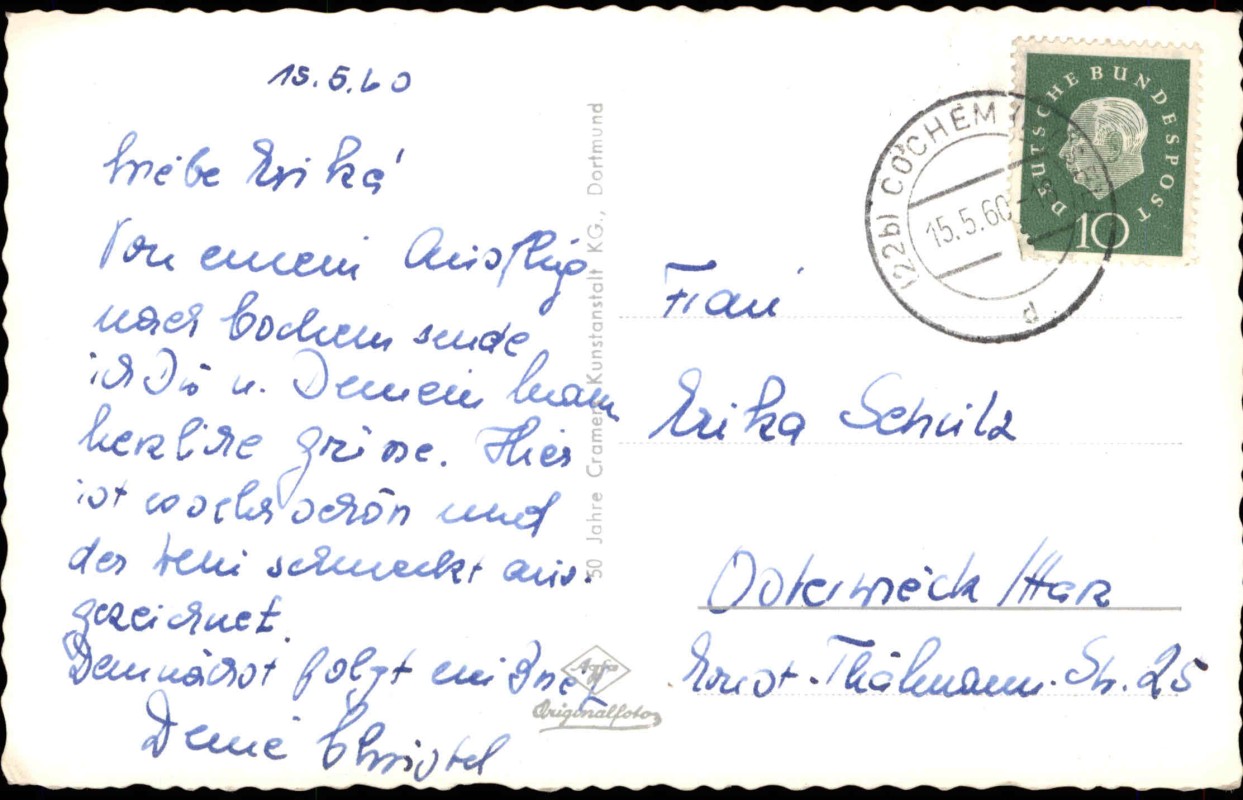 15.5.60
Liebe Erika!
Von einem Ausflug
nach Cochem sende
ich Dir u. Deinem Mann
herzliche Grüsse. Hier
ist es sehr schön und
der Wein schmeckt aus-
gezeichnet.
Demnächst folgt ein Brief
Deine Christel
50 Jahre Cramers Kunstanstalt KG., Dortmund
Agfa
Originalfoto
(22b) COCHEM
15.5.60
d
DEUTSCHE BUNDESPOST
10
Frau
Erika Schulz
Osterwieck /Harz
Ernst-Thälmann-Str. 25